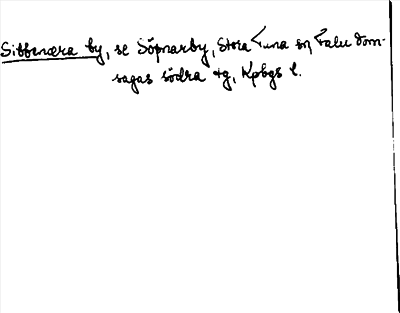 Sibbenæra by, se Söpnarby, Stora Tuna sn, Falu dom-
sagas södra tg, Kpbgs l.